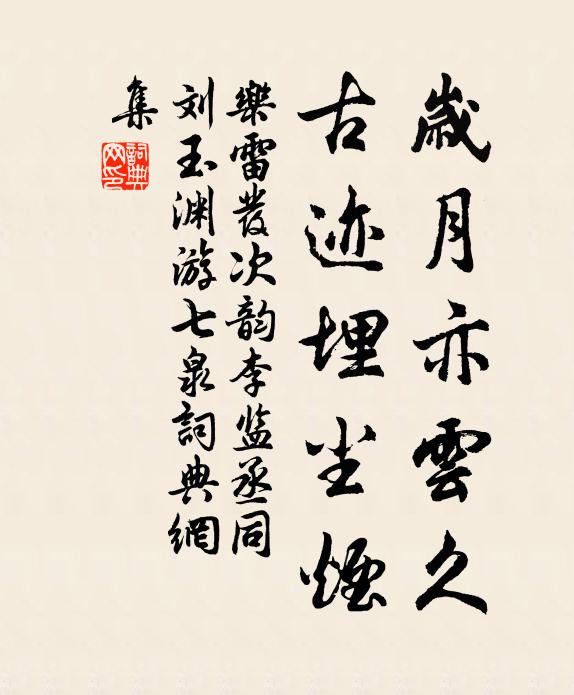 歲月亦雲久
古迹埋尘煙
樂雷發次韵李监丞同
刘玉渊游七泉詞典網
集
詞典網印